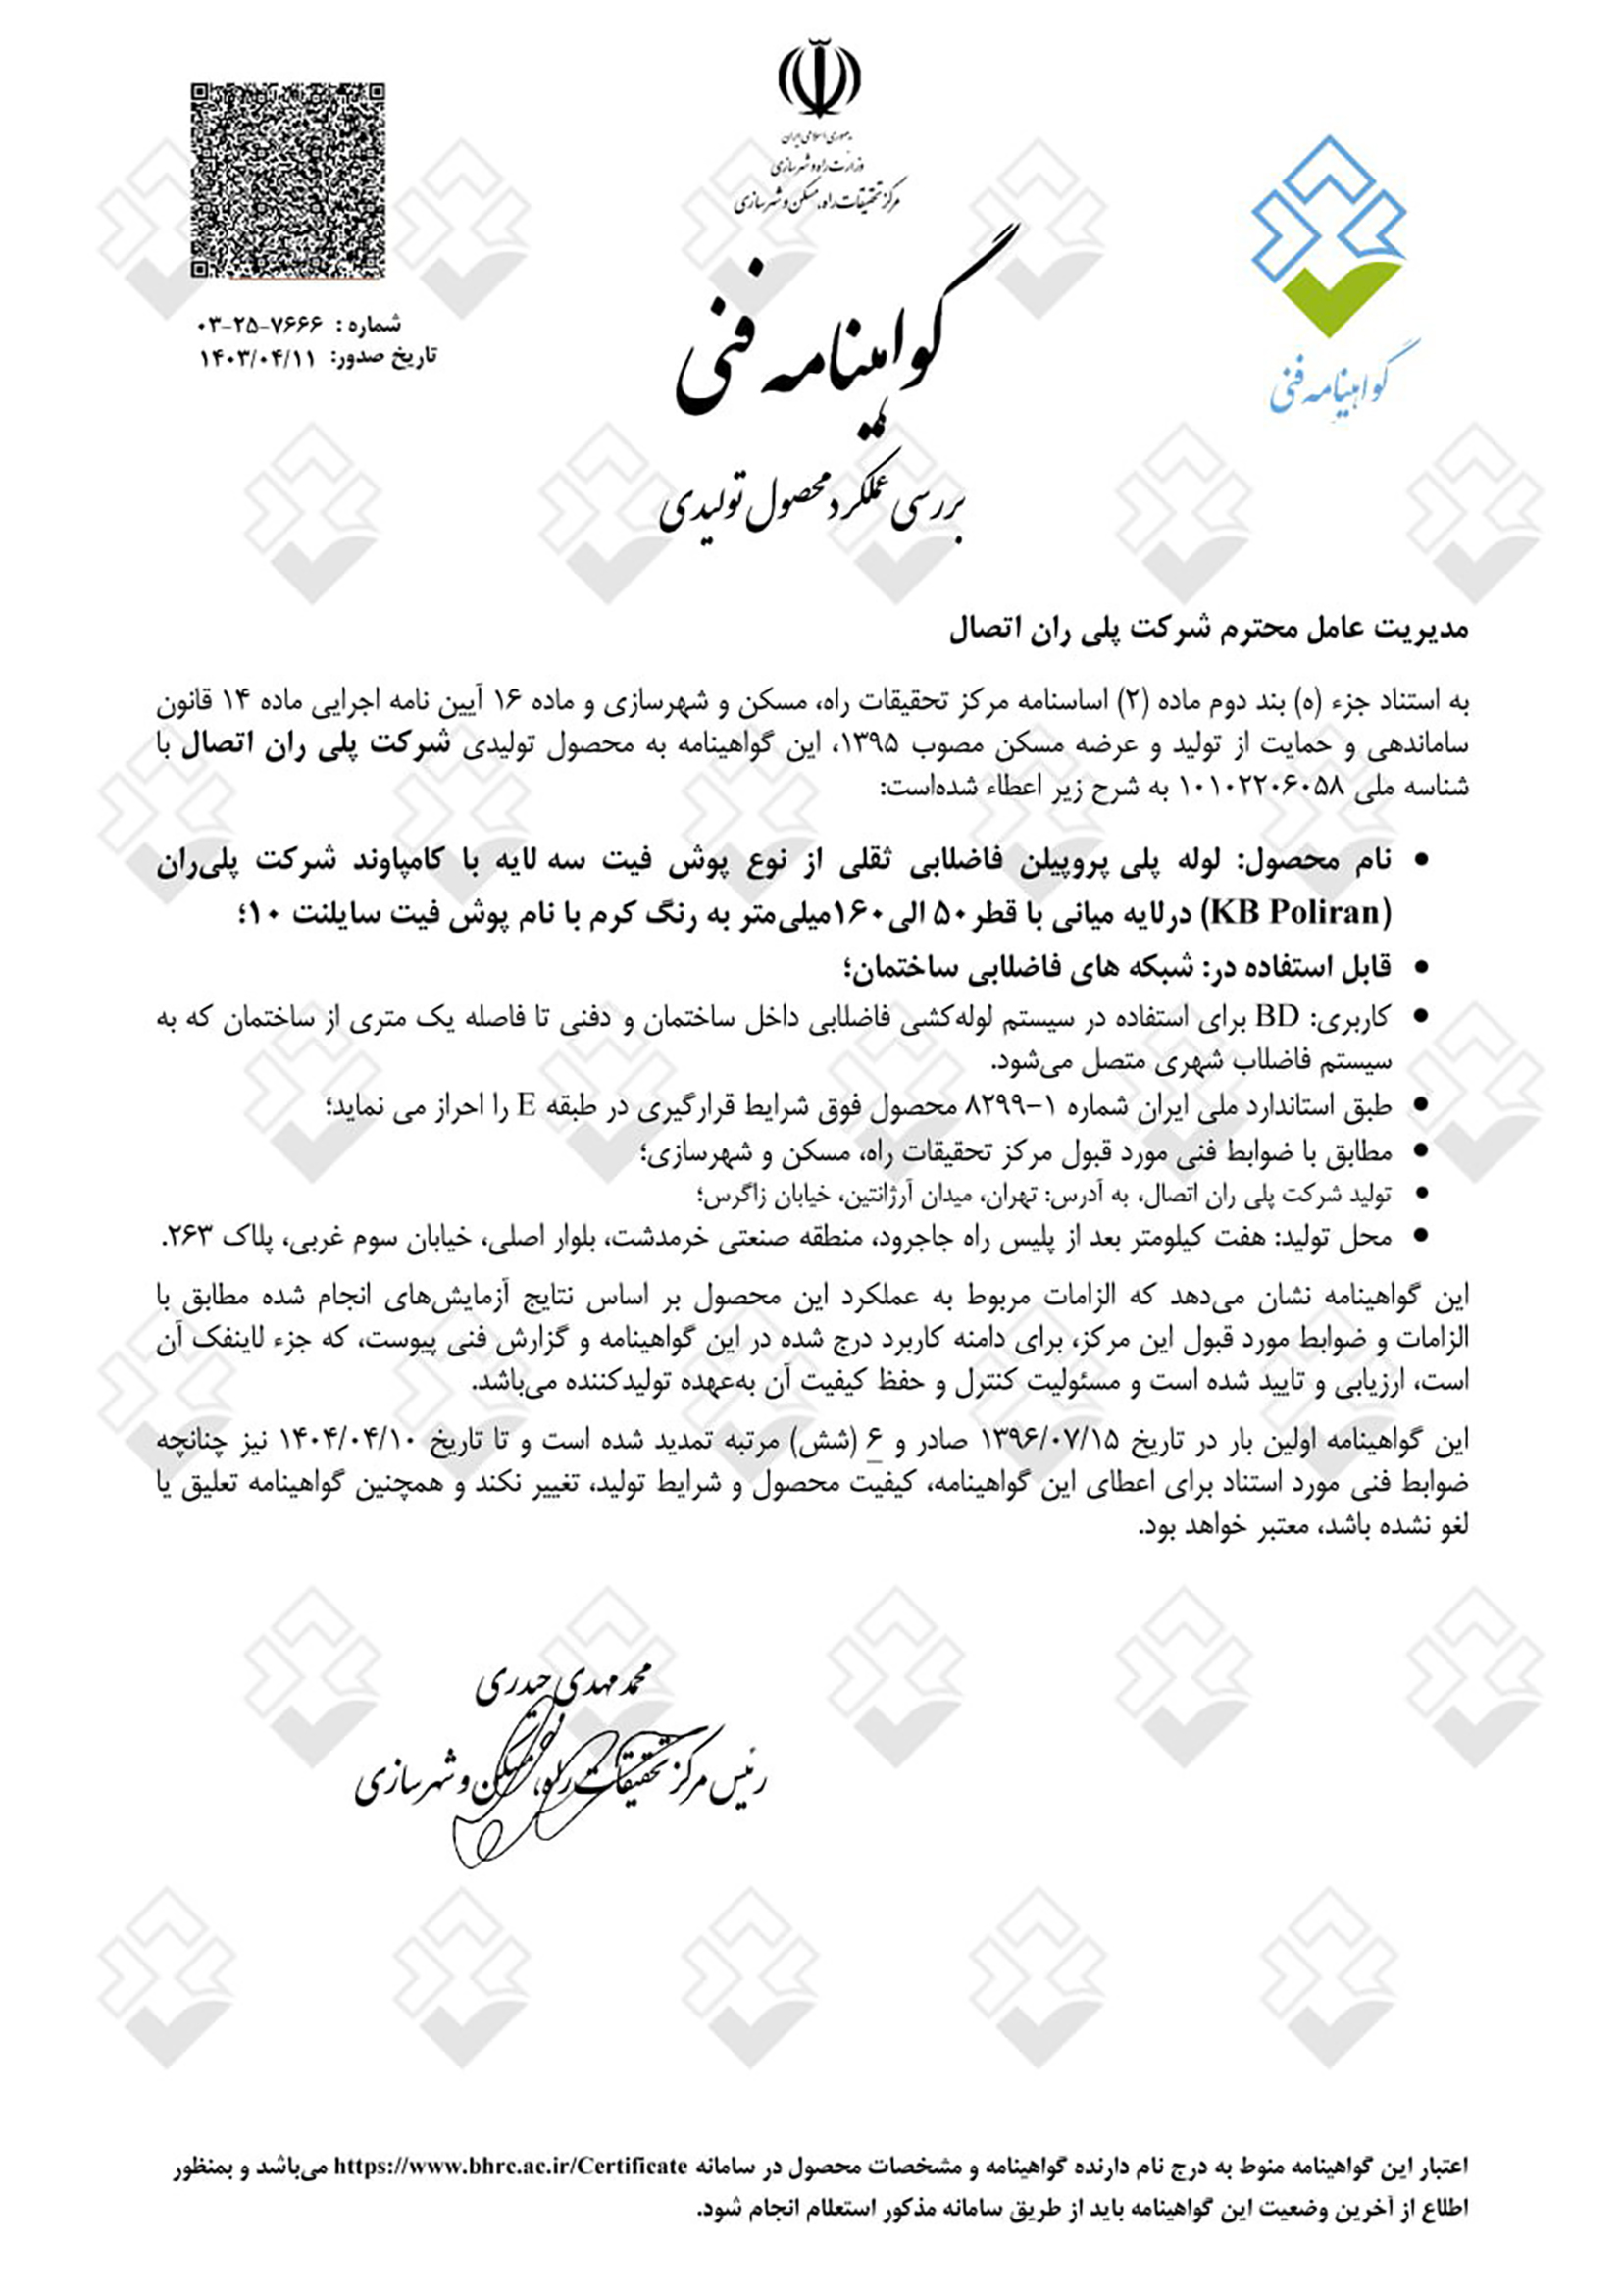 جمهوری اسلامی ایران
وزارت راه و شهرسازی
مرکز تحقیقات راه، مسکن و شهرسازی
گواهینامه فنی
شماره : ۰۳-۲۵-۷۶۶۶
تاریخ صدور: ۱۴۰۳/۰۴/۱۱
گواهینامه فنی
بررسی عملکرد محصول تولیدی
مدیریت عامل محترم شرکت پلی ران اتصال
به استناد جزء (ه) بند دوم ماده (۲) اساسنامه مرکز تحقیقات راه، مسکن و شهرسازی و ماده ۱۶ آیین نامه اجرایی ماده ۱۴ قانون
ساماندهی و حمایت از تولید و عرضه مسکن مصوب ۱۳۹۵، این گواهینامه به محصول تولیدی شرکت پلی ران اتصال با
شناسه ملی ۱۰۱۰۲۲۰۶۰۵۸ به شرح زیر اعطاء شده‌است:
• نام محصول: لوله پلی پروپیلن فاضلابی ثقلی از نوع پوش فیت سه لایه با کامپاوند شرکت پلی‌ران
(KB Poliran) درلایه میانی با قطر ۵۰ الی ۱۶۰میلی‌متر به رنگ کرم با نام پوش فیت سایلنت ۱۰؛
• قابل استفاده در: شبکه های فاضلابی ساختمان؛
• کاربری: BD برای استفاده در سیستم لوله‌کشی فاضلابی داخل ساختمان و دفنی تا فاصله یک متری از ساختمان که به
سیستم فاضلاب شهری متصل می‌شود.
• طبق استاندارد ملی ایران شماره ۱-۸۲۹۹ محصول فوق شرایط قرارگیری در طبقه E را احراز می نماید؛
• مطابق با ضوابط فنی مورد قبول مرکز تحقیقات راه، مسکن و شهرسازی؛
• تولید شرکت پلی ران اتصال، به آدرس: تهران، میدان آرژانتین، خیابان زاگرس؛
• محل تولید: هفت کیلومتر بعد از پلیس راه جاجرود، منطقه صنعتی خرمدشت، بلوار اصلی، خیابان سوم غربی، پلاک ۲۶۳.
این گواهینامه نشان می‌دهد که الزامات مربوط به عملکرد این محصول بر اساس نتایج آزمایش‌های انجام شده مطابق با
الزامات و ضوابط مورد قبول این مرکز، برای دامنه کاربرد درج شده در این گواهینامه و گزارش فنی پیوست، که جزء لاینفک آن
است، ارزیابی و تایید شده است و مسئولیت کنترل و حفظ کیفیت آن به‌عهده تولیدکننده می‌باشد.
این گواهینامه اولین بار در تاریخ ۱۳۹۶/۰۷/۱۵ صادر و ۶ (شش) مرتبه تمدید شده است و تا تاریخ ۱۴۰۴/۰۴/۱۰ نیز چنانچه
ضوابط فنی مورد استناد برای اعطای این گواهینامه، کیفیت محصول و شرایط تولید، تغییر نکند و همچنین گواهینامه تعلیق یا
لغو نشده باشد، معتبر خواهد بود.
محمد مهدی حیدری
رئیس مرکز تحقیقات راه، مسکن و شهرسازی
اعتبار این گواهینامه منوط به درج نام دارنده گواهینامه و مشخصات محصول در سامانه https://www.bhrc.ac.ir/Certificate می‌باشد و بمنظور
اطلاع از آخرین وضعیت این گواهینامه باید از طریق سامانه مذکور استعلام انجام شود.